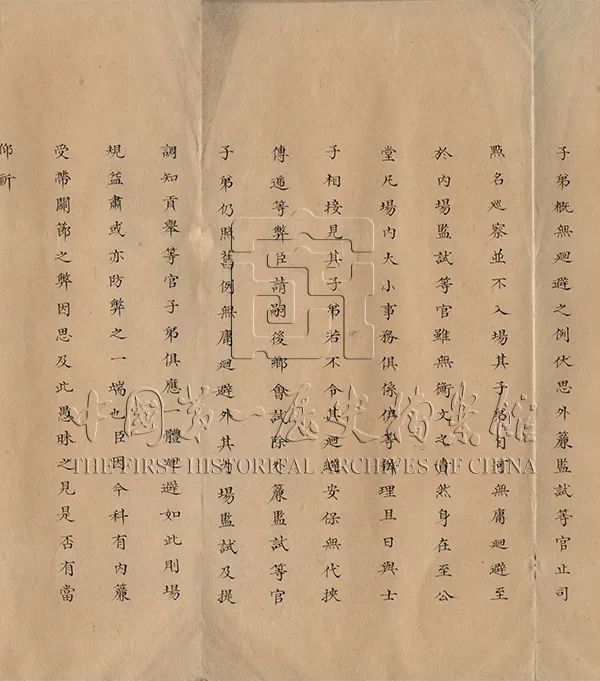 子弟概無迴避之例伏思外簾監試等官止司
點名巡察並不入場其子弟自可無庸迴避至
於內場監試等官雖無衡文之責然身在至公
堂凡場內大小事務俱係伊等辦理且日與士
子相接見其子弟若不令其迴避安保無代挾
傳遞等弊臣請嗣後鄉會試除外簾監試等官
子弟仍照舊例無庸迴避外其內場監試及提
調知貢舉等官子弟俱應一體迴避如此則場
規益肅或亦防弊之一端也臣因今科有內簾
受帶關節之弊因思及此愚昧之見是否有當
仰祈
中國第一歷史檔案館
THE FIRST HISTORICAL ARCHIVES OF CHINA